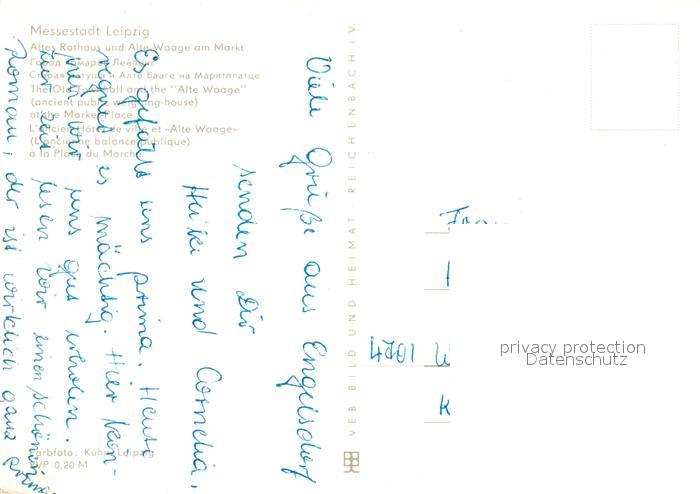 Messestadt Leipzig
Altes Rathaus und Alte Waage am Markt
Город ярмарок Лейпциг
Старая ратуша и Алте Вааге на Марктплатце
The Old Town hall and the "Alte Waage"
(ancient public weighing-house)
at the Market Place
L'ancien Hôtel de ville et «Alte Waage»
(L'ancienne balance publique)
à la Place du Marché
Viele Grüße aus Engelsdorf
senden Dir
Heiki und Cornelia.
Es gefällt uns prima. Heute
regnet es mächtig. Hier kön-
nen wir uns gut erholen.
Zur Zeit lesen wir einen schönen
Roman, der ist wirklich ganz prima
VEB BILD UND HEIMAT · REICHENBACH i.V.
Farbfoto: Kühn, Leipzig
EVP 0,20 M
K
privacy protection
Datenschutz